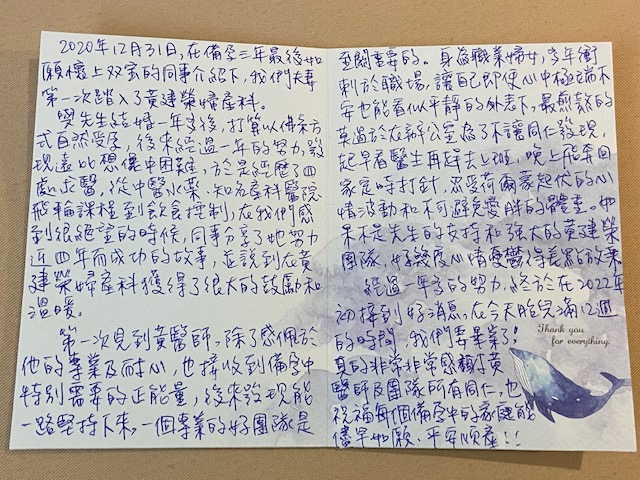 2020年12月31日,在備孕三年最後如
願懷上双寶的同事介紹下,我們夫妻
第一次踏入了黃建榮婦產科。
與先生結婚一年多後,打算以佛系方
式自然受孕,後來經過一年的努力,發
現遠比想像中困難,於是經歷了四
處求醫,從中醫水藥、知名產科醫院
飛輪課程到飲食控制,在我們感
到很絕望的時候,同事分享了她努力
近四年而成功的故事,並說到在黃
建榮婦產科獲得了很大的鼓勵和
溫暖。
第一次見到黃醫師,除了感佩於
他的專業及耐心,也接收到備孕中
特別需要的正能量,後來發現能
一路堅持下來,一個專業的好團隊是
至關重要的。身為職業婦女,多年衝
刺於職場,讓自己即使心中極端不
安也能看似平靜的外表下,最煎熬的
莫過於在辦公室為了不讓同仁發現,
起早看醫生再趕去上班,晚上飛奔回
家定時打針,忍受荷爾蒙起伏的心
情波動和不可避免變胖的體重。如
果不是先生的支持和強大的黃建榮
團隊,好幾度心情憂鬱得
經過一年多的努力,終於在2022年
初接到好消息,在今天胎兒滿12週
的時間,我們要畢業了!
真的非常非常感謝黃
醫師及團隊所有同仁,也
祝福每個備孕中的家庭能
儘早如願、平安順產!!
Thank you
for everything.